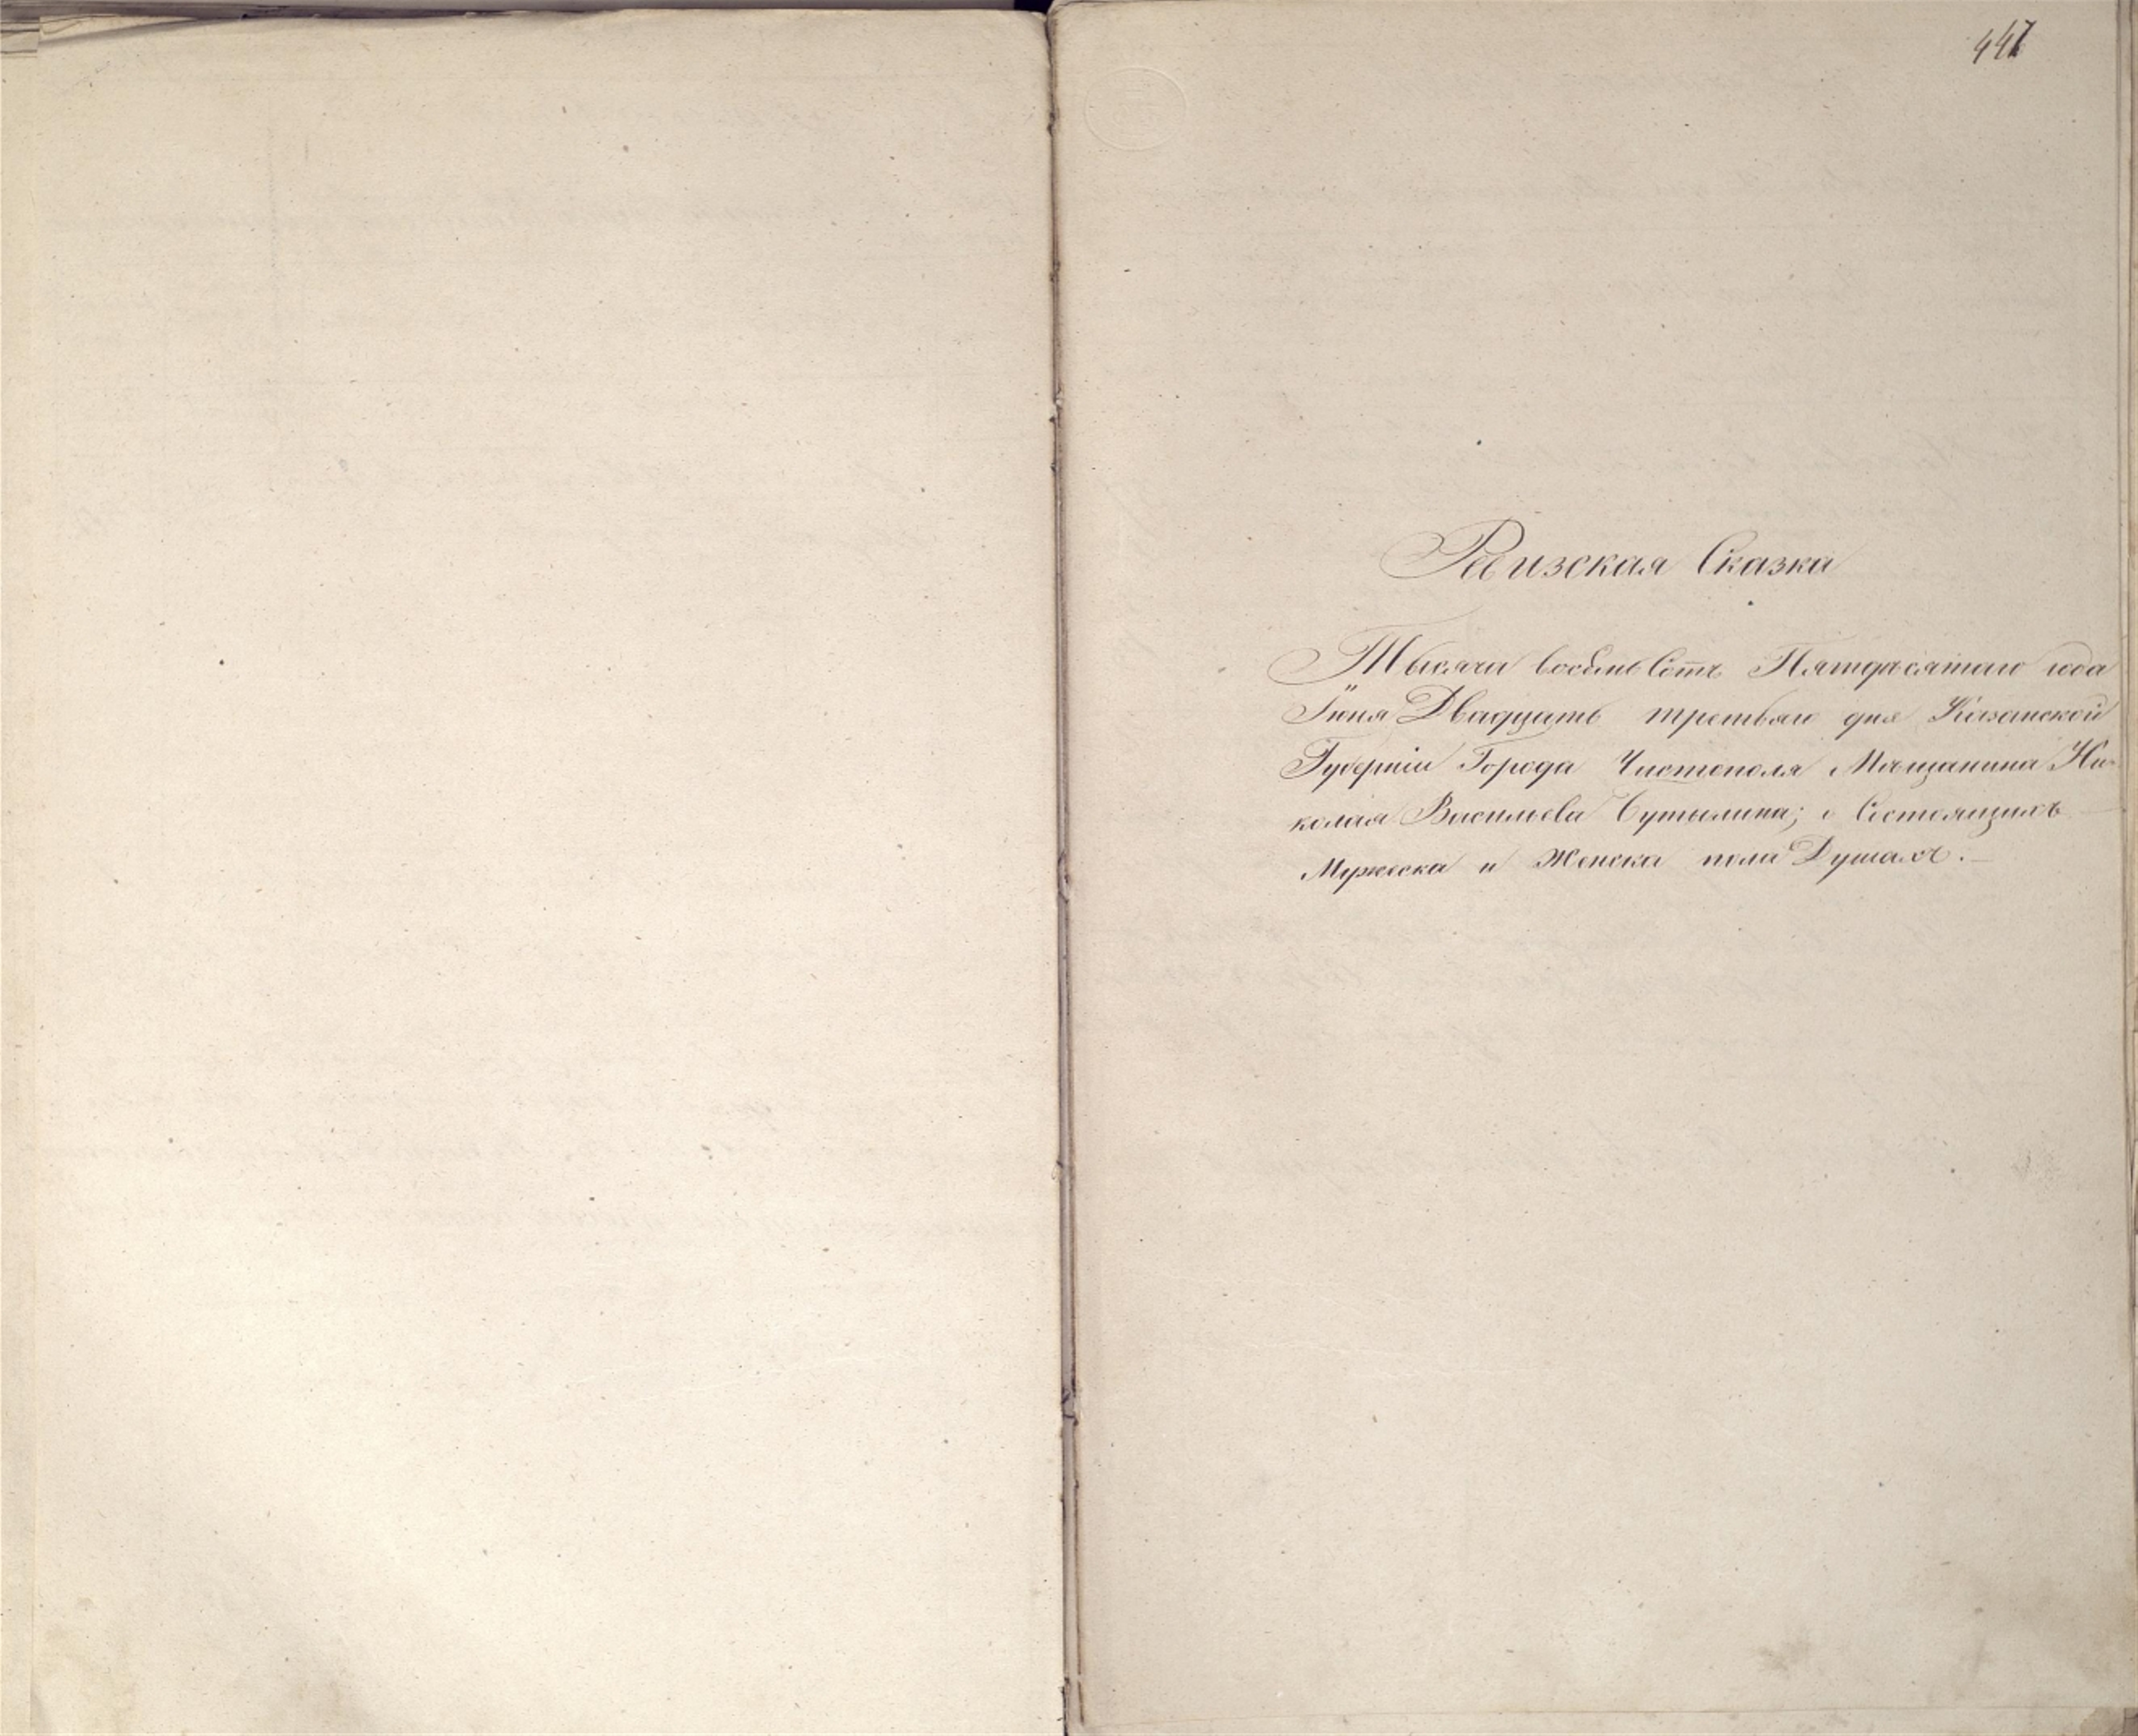 447
Ревизская Сказка
Тысячи восемь Сотъ Пятдесятаго года
Іюня Двадцать третьяго дня Казанской
Губерніи Города Чистополя Мѣщанина Ни-
колая Васильева Бутылина; о Состоящихъ
Мужеска и Женска пола Душахъ.